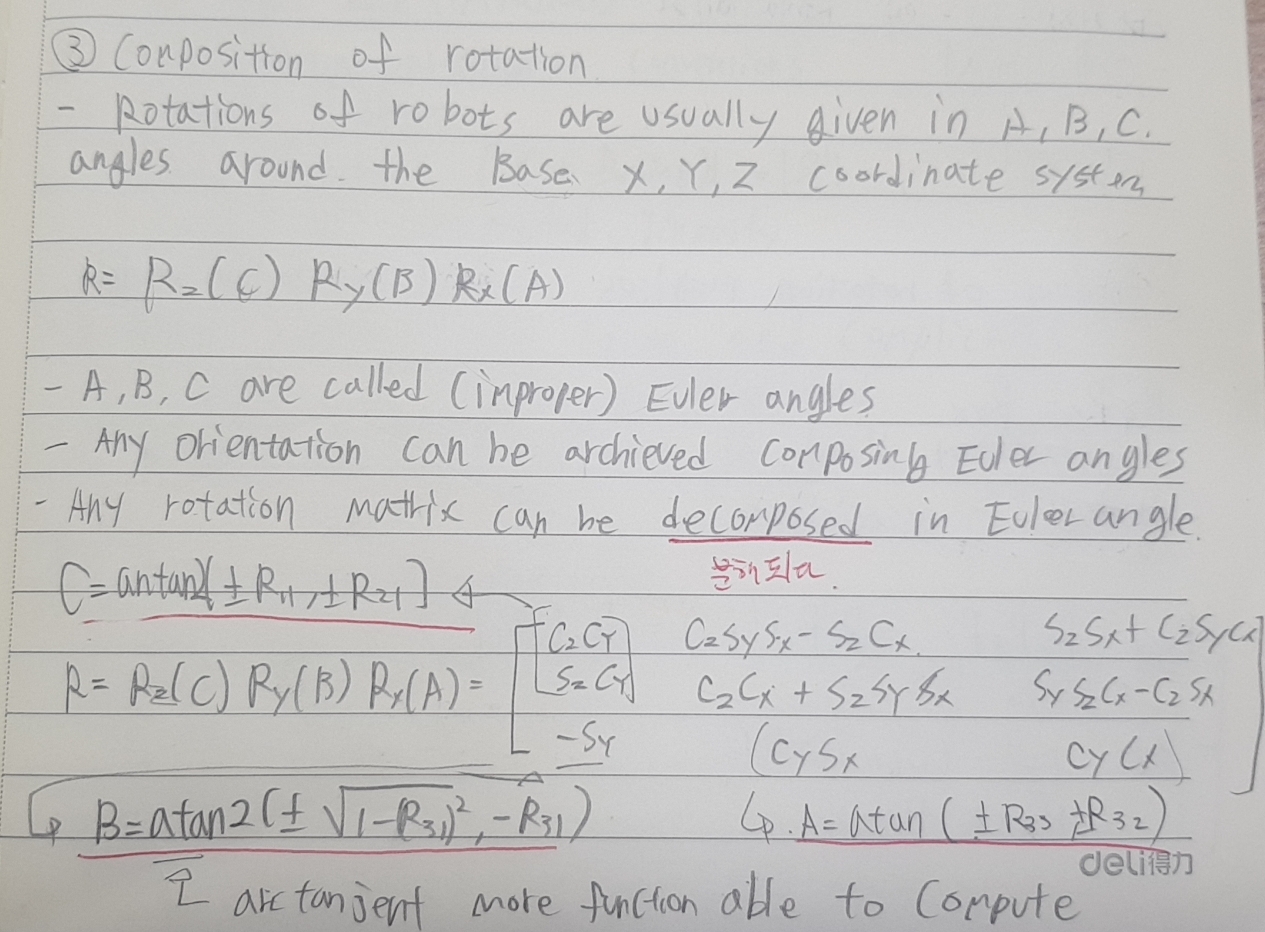 ③ Composition of rotation
- Rotations of robots are usually given in A, B, C.
angles around the Base X, Y, Z coordinate system
R= Rz(C) Ry(B) Rx(A)
- A, B, C are called (improper) Euler angles
- Any orientation can be archieved composing Euler angles
- Any rotation matrix can be decomposed in Euler angle.
분해되다.
C=antan2[±R11,±R21]
CzCy CzSySx-SzCx SzSx+CzSyCx
R= Rz(C) Ry(B) Rx(A)= SzCy CzCx+SzSySx SySzCx-CzSx
-Sy (CySx CyCx)
B=atan2(±√(1-R31)², -R31) A=atan(±R33 ±R32)
deli得力
arctanjent more function able to compute